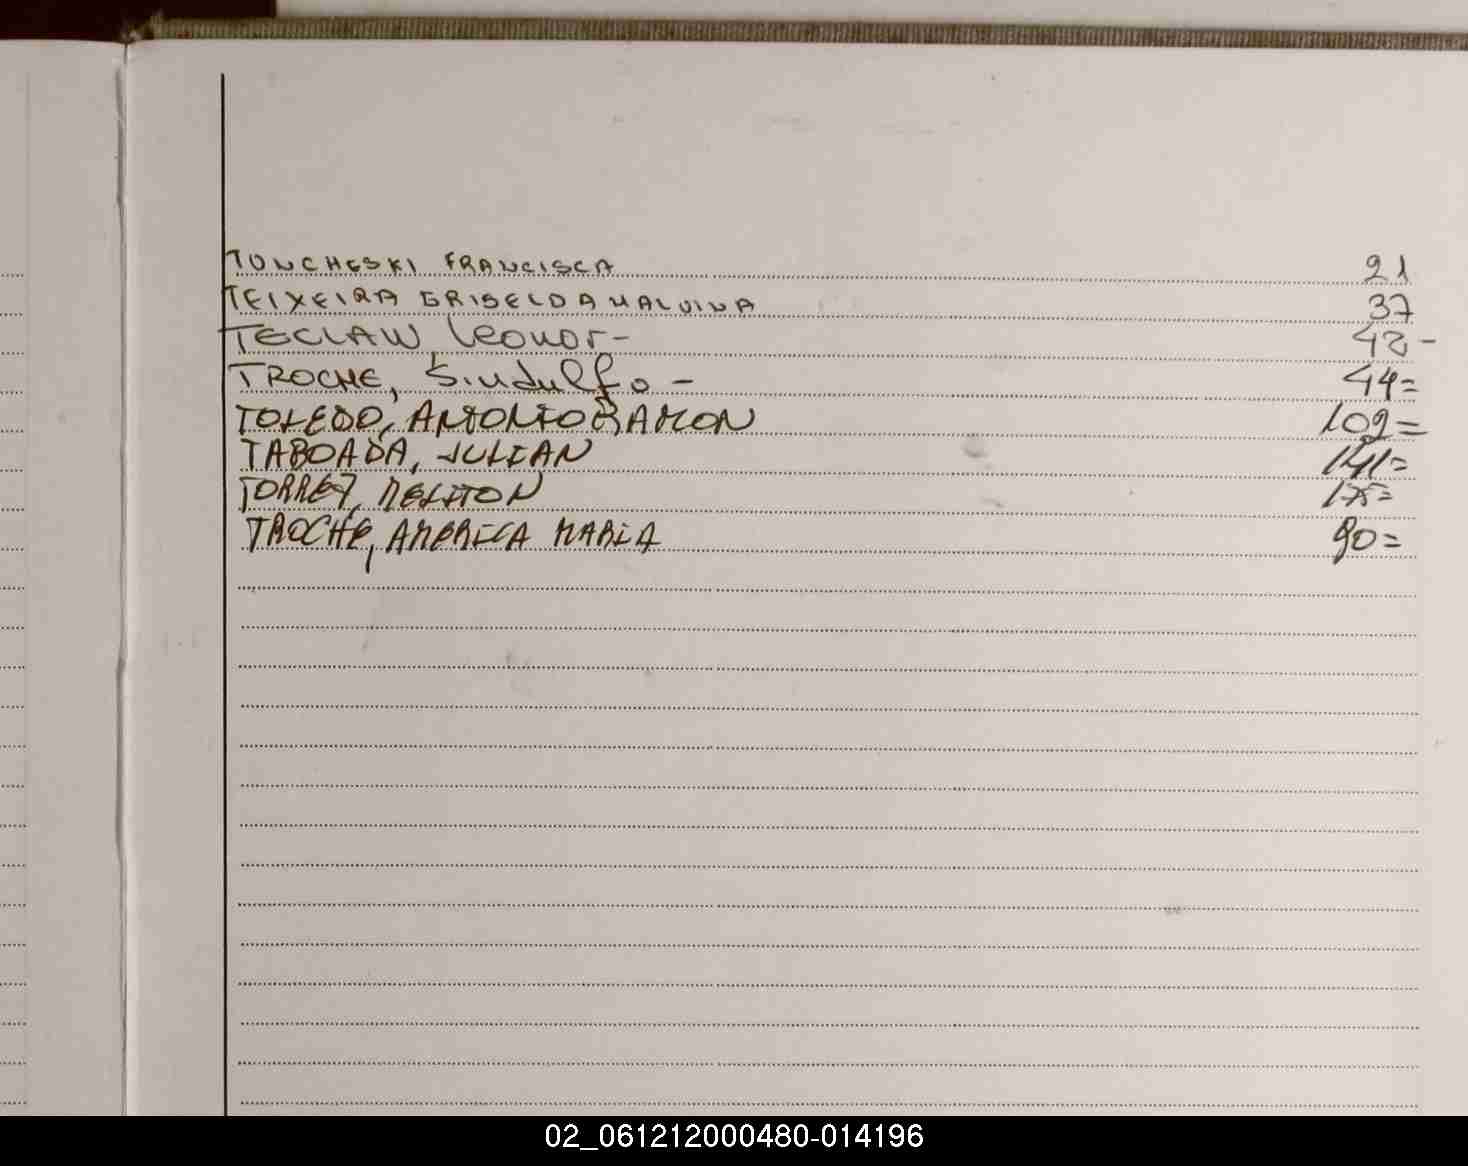 TONCHESKI FRANCISCA 21
TEIXEIRA GRISELDA MALVINA 37
TECLAW Leonor- 42-
TROCHE, Sindulfo- 44=
TOLEDO, ANTONIO RAMON 109=
TABOADA, JULIAN 141=
TORREZ, MELITON 175=
TROCHE, AMERICA MARIA 90=
02_061212000480-014196